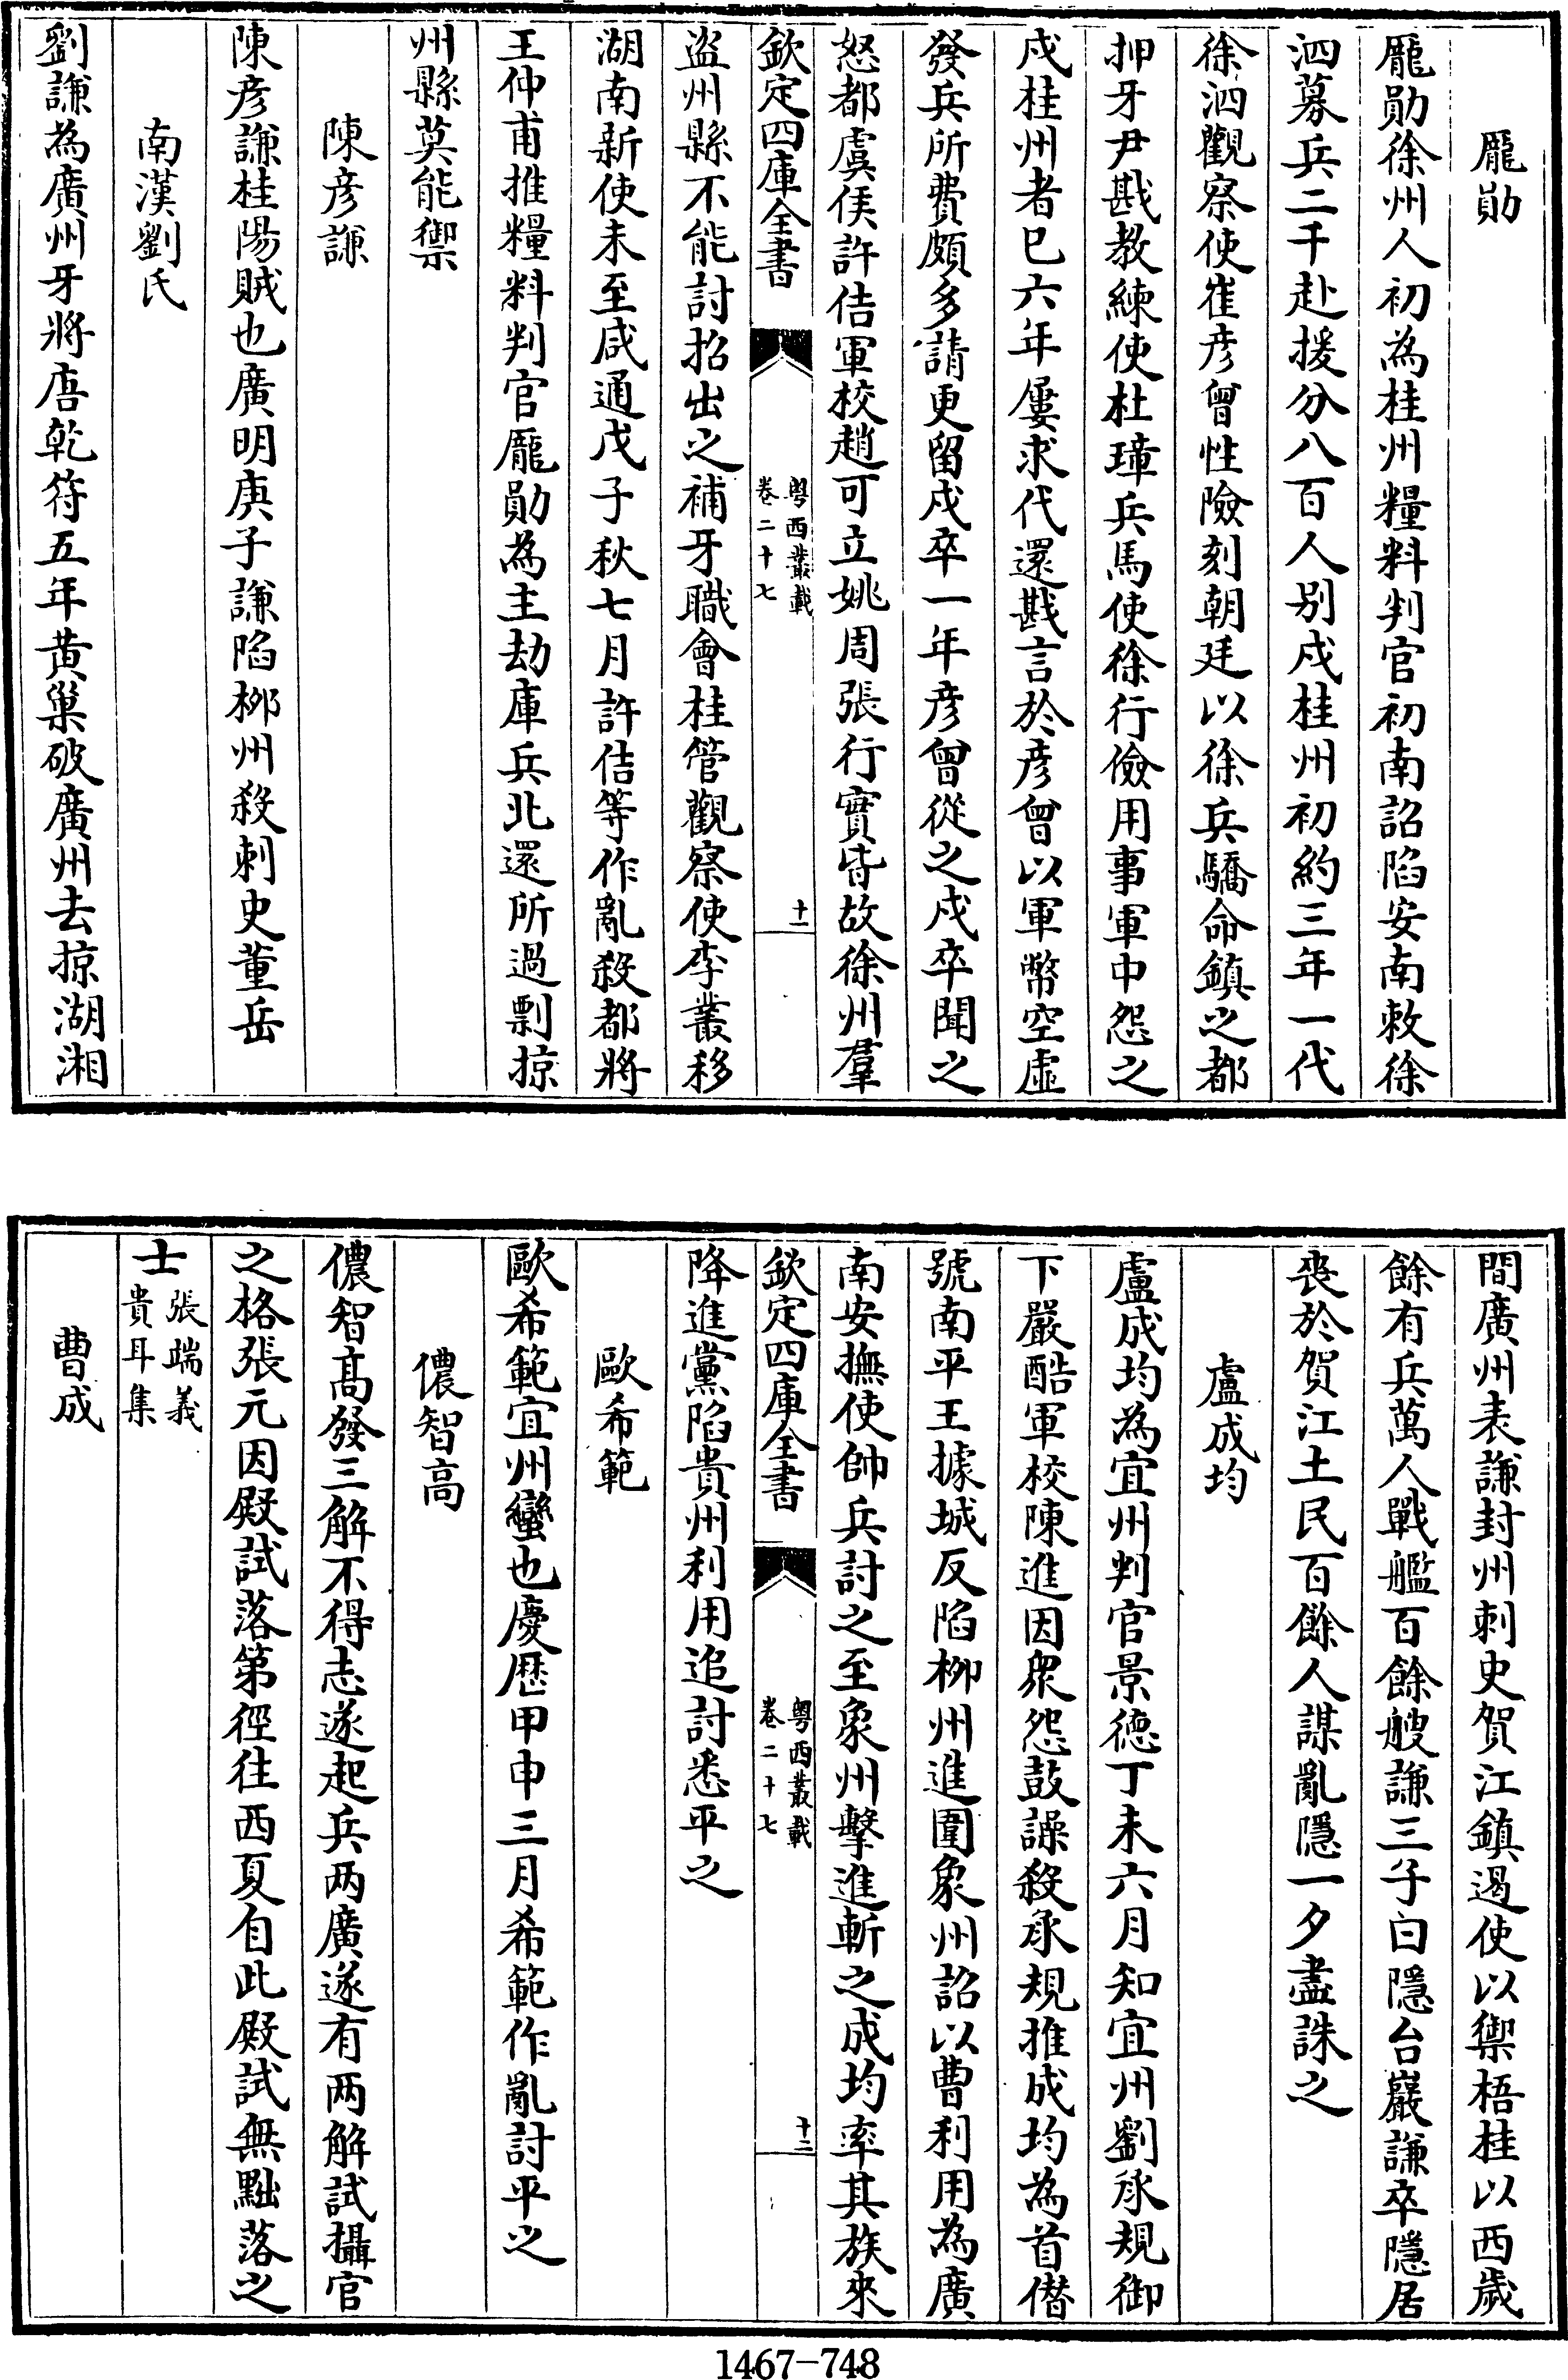 龎勛
龎勛徐州人初為桂州糧料判官初南詔陷安南敕徐
泗募兵二千赴援分八百人别戍桂州初約三年一代
徐泗觀察使崔彦曾性險刻朝廷以徐兵驕命鎮之都
押牙尹戡教練使杜璋兵馬使徐行儉用事軍中怨之
戍桂州者已六年屢求代還戡言於彦曾以軍幣空虚
發兵所費頗多請更留戍卒一年彦曾從之戍卒聞之
怒都虞侯許佶軍校趙可立姚周張行實皆故徐州羣
欽定四庫全書
粤西叢載
卷二十七
十一
盗州縣不能討招出之補牙職會桂管觀察使李叢移
湖南新使未至咸通戊子秋七月許佶等作亂殺都將
王仲甫推糧料判官龎勛為主劫庫兵北還所過剽掠
州縣莫能禦
陳彦謙
陳彦謙桂陽賊也廣明庚子謙陷栁州殺刺史董岳
南漢劉氏
劉謙為廣州牙將唐乾符五年黄巢破廣州去掠湖湘
間廣州表謙封州刺史賀江鎮遏使以禦梧桂以西歲
餘有兵萬人戰艦百餘艘謙三子曰隱台巖謙卒隱居
喪於賀江土民百餘人謀亂隱一夕盡誅之
盧成均
盧成均為宜州判官景德丁未六月知宜州劉承規御
下嚴酷軍校陳進因衆怨鼓譟殺承規推成均為首僭
號南平王據城反陷栁州進圍象州詔以曹利用為廣
南安撫使帥兵討之至象州擊進斬之成均率其族來
欽定四庫全書
粤西叢載
卷二十七
十二
降進黨陷貴州利用追討悉平之
歐希範
歐希範宜州蠻也慶歴甲申三月希範作亂討平之
儂智高
儂智高發三解不得志遂起兵兩廣遂有兩解試攝官
之格張元因殿試落第徑往西夏自此殿試無黜落之
士張端義
貴耳集
曹成
1467-748